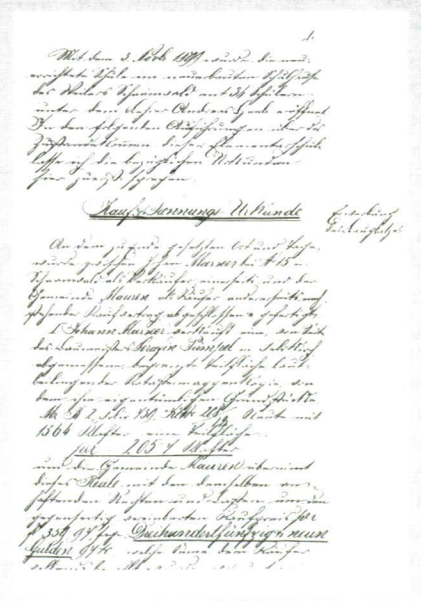 1.
Mit dem 3. Novb. 1899 wurde die neu
errichtete Schule im neuerbauten Schulhause
des Weilers Schaanwald mit 34 Schülern
unter dem Lehrer Andreas eröffnet
In den folgenden Aufzeichnungen über das
Zustandekommen dieser Elementarschule
lasse ich die bezüglichen Urkunden
hier zuerst sprechen.
Kauf & Trennungs Urkunde
Erwerbung
An dem zu Ende gesetzten Ort und Tage,
wurde zwischen Johann Marxer bei N 15 in
Schaanwald als Verkäufer einerseits und der
Gemeinde Mauren als Käufer andererseits nach-
stehender Kaufvertrag abgeschlossen & gefertigt.
1 Johann Marxer verkauft eine, von Seite
des Baumeisters Seraphin Pümpel in Feldkirch
abgemessene, begrenzte Theilfläche laut
beiliegender Katastermappenkopie, von
dem ihm eigentümlichen Grundstücke
Route mit
1564 Klafter eine Theilfläche
per 205 Klafter
und die Gemeinde Mauren übernimt
dieses Reale mit den demselben an-
haftenden Rechten und Lasten um den
gegenseitig vereinbarten Kaufpreis per
fl 359, 97 Dreihundertfünfzigneun
Gulden 97 welche Summe dem Käufer